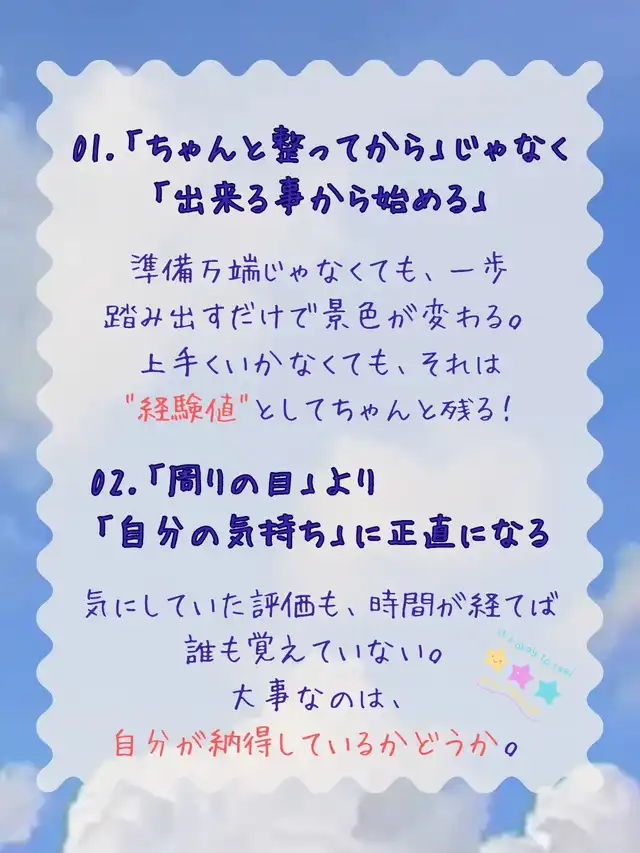 01.「ちゃんと整ってから」じゃなく
「出来る事から始める」
準備万端じゃなくても、一歩
踏み出すだけで景色が変わる。
上手くいかなくても、それは
"経験値"としてちゃんと残る!
02.「周りの目」より
「自分の気持ち」に正直になる
気にしていた評価も、時間が経てば
誰も覚えていない。
大事なのは、
自分が納得しているかどうか。
it's okay to